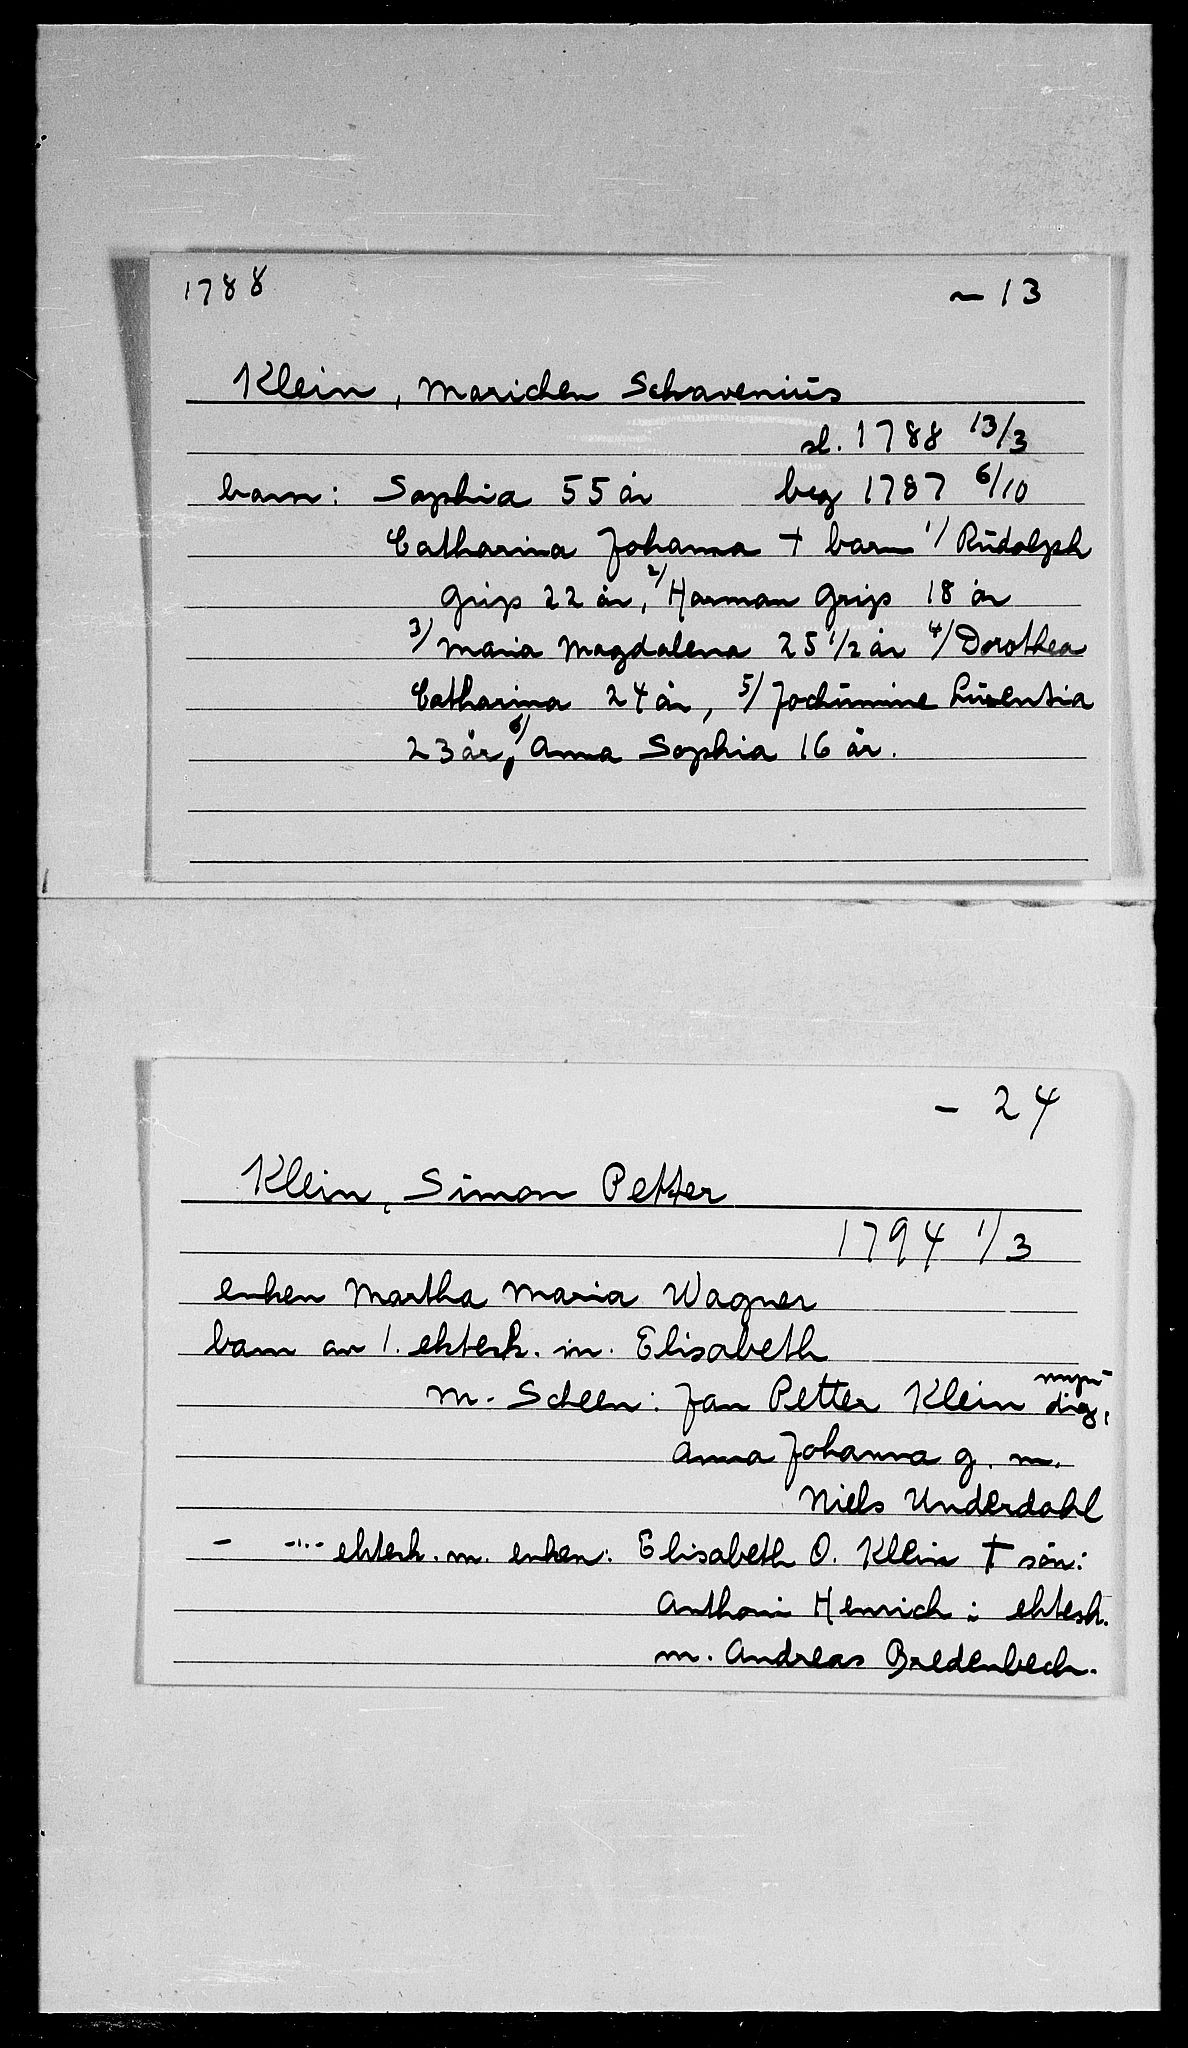 1788 - 13
Klein, Marichen Schavenius
sl. 1788 13/3
barn: Sophia 55 år beg 1787 6/10
Catharina Johanna † barn 1/ Rudolph
Grip 22 år, 2/ Harman Grip 18 år
3/ Maria Magdalena 25 1/2 år 4/ Dorothea
Catharina 24 år, 5/ Jochumine Lucentia
23 år, 6/ Anna Sophia 16 år.
- 24
Klein, Simon Petter
1794 1/3
enken Martha Maria Wagner
barn av 1. ektesk. m. Elisabeth
M. Scheen: Jan Petter Klein myn-
dig,
Anna Johanna g. m.
Niels Underdahl
- -"- ektesk. m. enken: Elisabeth O. Klein † søn:
Anthoni Henrich i ektesk.
m. Andreas Bredenbech.